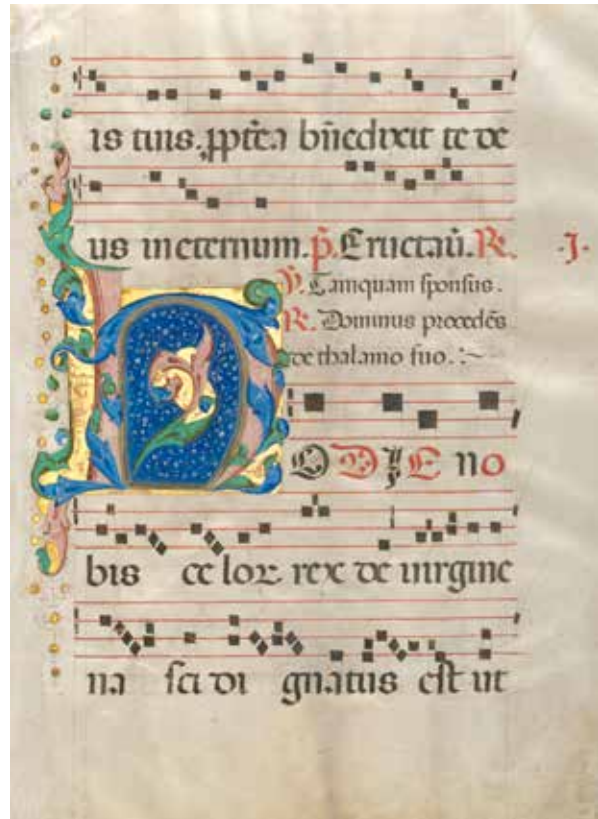 is tuis. ppt̄ea bn̄edixit te de
us in eternum. p̄. Eructau̅. R. .I.
V. Tamquam sponsus.
R. Dominus procedēs
de thalamo suo.
HODIE no
bis ce lor rex de uirgine
na sci di gnatus est ut